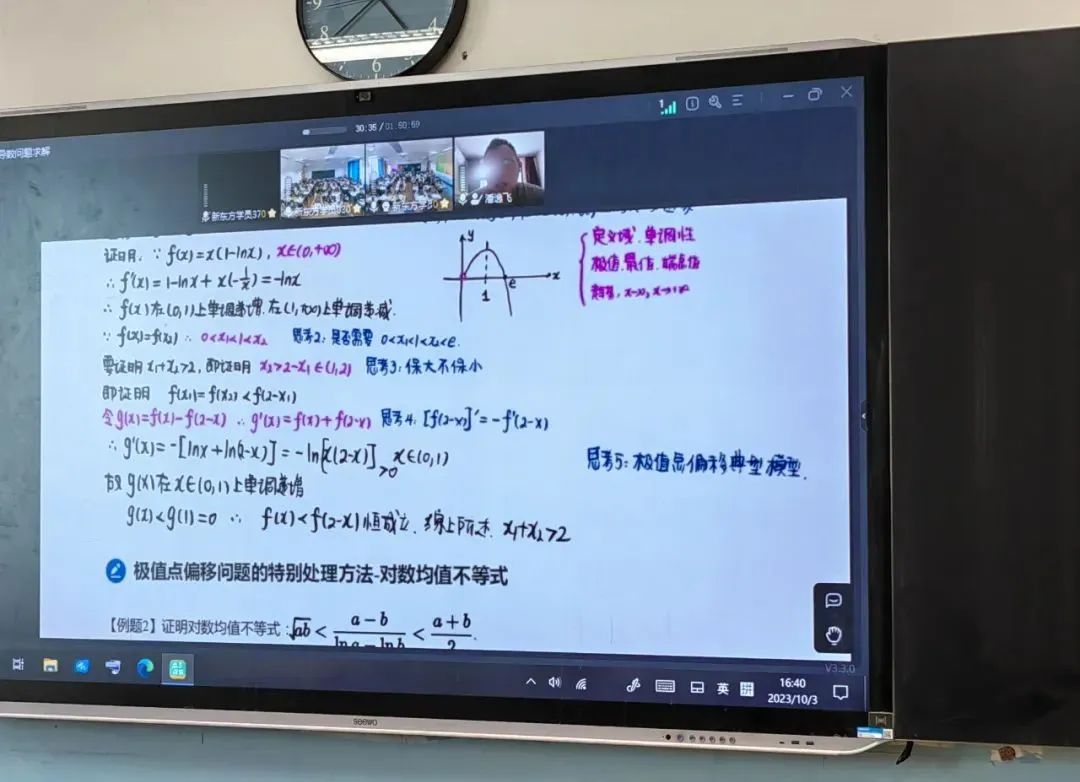 9
8
4
6
导数问题求解
30:35 / 01:50:59
新东方学员370
证明:∵ f(x)=x(1-lnx), x∈(0,+∞)
∴ f'(x)=1-lnx+x(-1/x)=-lnx
∴ f(x)在(0,1)上单调递增.在(1,+∞)上单调递减.
∵ f(x₁)=f(x₂) ∴ 0<x₁<1<x₂ 思考2:是否需要 0<x₁<1<x₂<e.
要证明x₁+x₂>2,即证明 x₂>2-x₁∈(1,2) 思考3:保大不保小
即证明 f(x₁)=f(x₂)<f(2-x₁)
令g(x)=f(x)-f(2-x) ∴ g'(x)=f(x)+f(2-x) 思考4:[f(2-x)]'=-f'(2-x)
∴ g'(x)=-[lnx+ln(2-x)]=-ln[x(2-x)]>0 x∈(0,1)
故 g(x)在x∈(0,1)上单调递增
g(x)<g(1)=0 ∴ f(x)<f(2-x)恒成立.综上所述. x₁+x₂>2
y
x
1
e
定义域.单调性
极值.最值.端点值
思考5:极值点偏移典型模型.
极值点偏移问题的特别处理方法-对数均值不等式
【例题2】证明对数均值不等式:√ab < (a-b)/(lna-lnb) < (a+b)/2.
V3.3.0
英
拼
16:40
2023/10/3
seewo